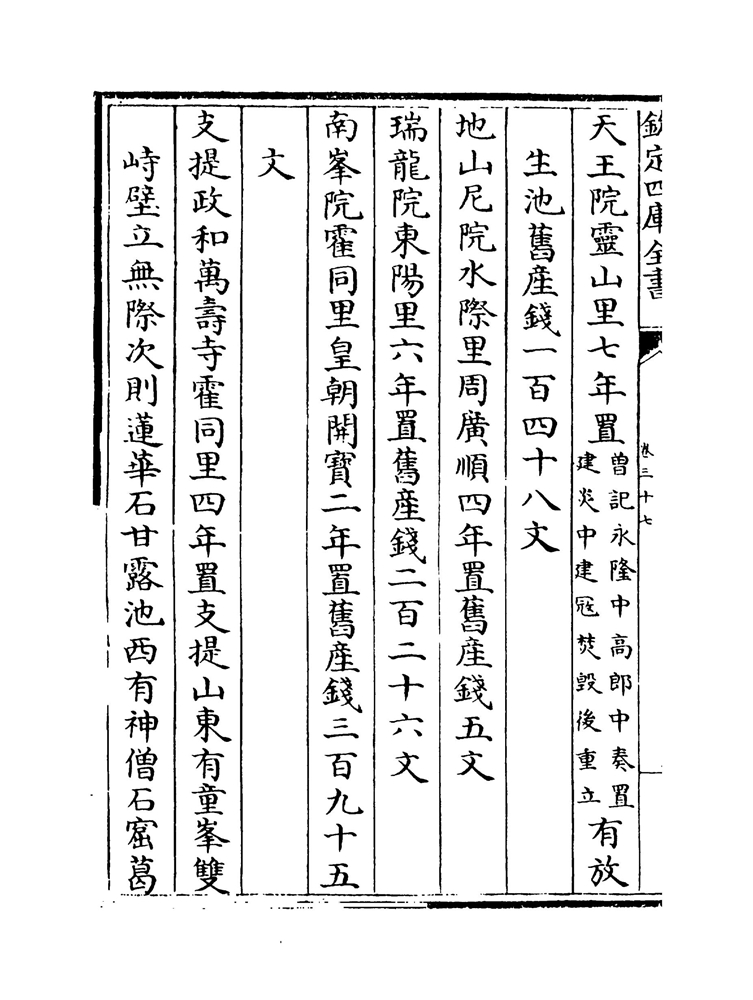 欽定四庫全書
卷三十七
天王院靈山里七年置曾記永隆中高郎中奏置建炎中建冦焚毁後重立有放
生池舊産錢一百四十八文
地山尼院水際里周廣順四年置舊産錢五文
瑞龍院東陽里六年置舊産錢二百二十六文
南峯院霍同里皇朝開寳二年置舊産錢三百九十五
文
支提政和萬壽寺霍同里四年置支提山東有童峯雙
峙壁立無際次則蓮華石甘露池西有神僧石窟葛